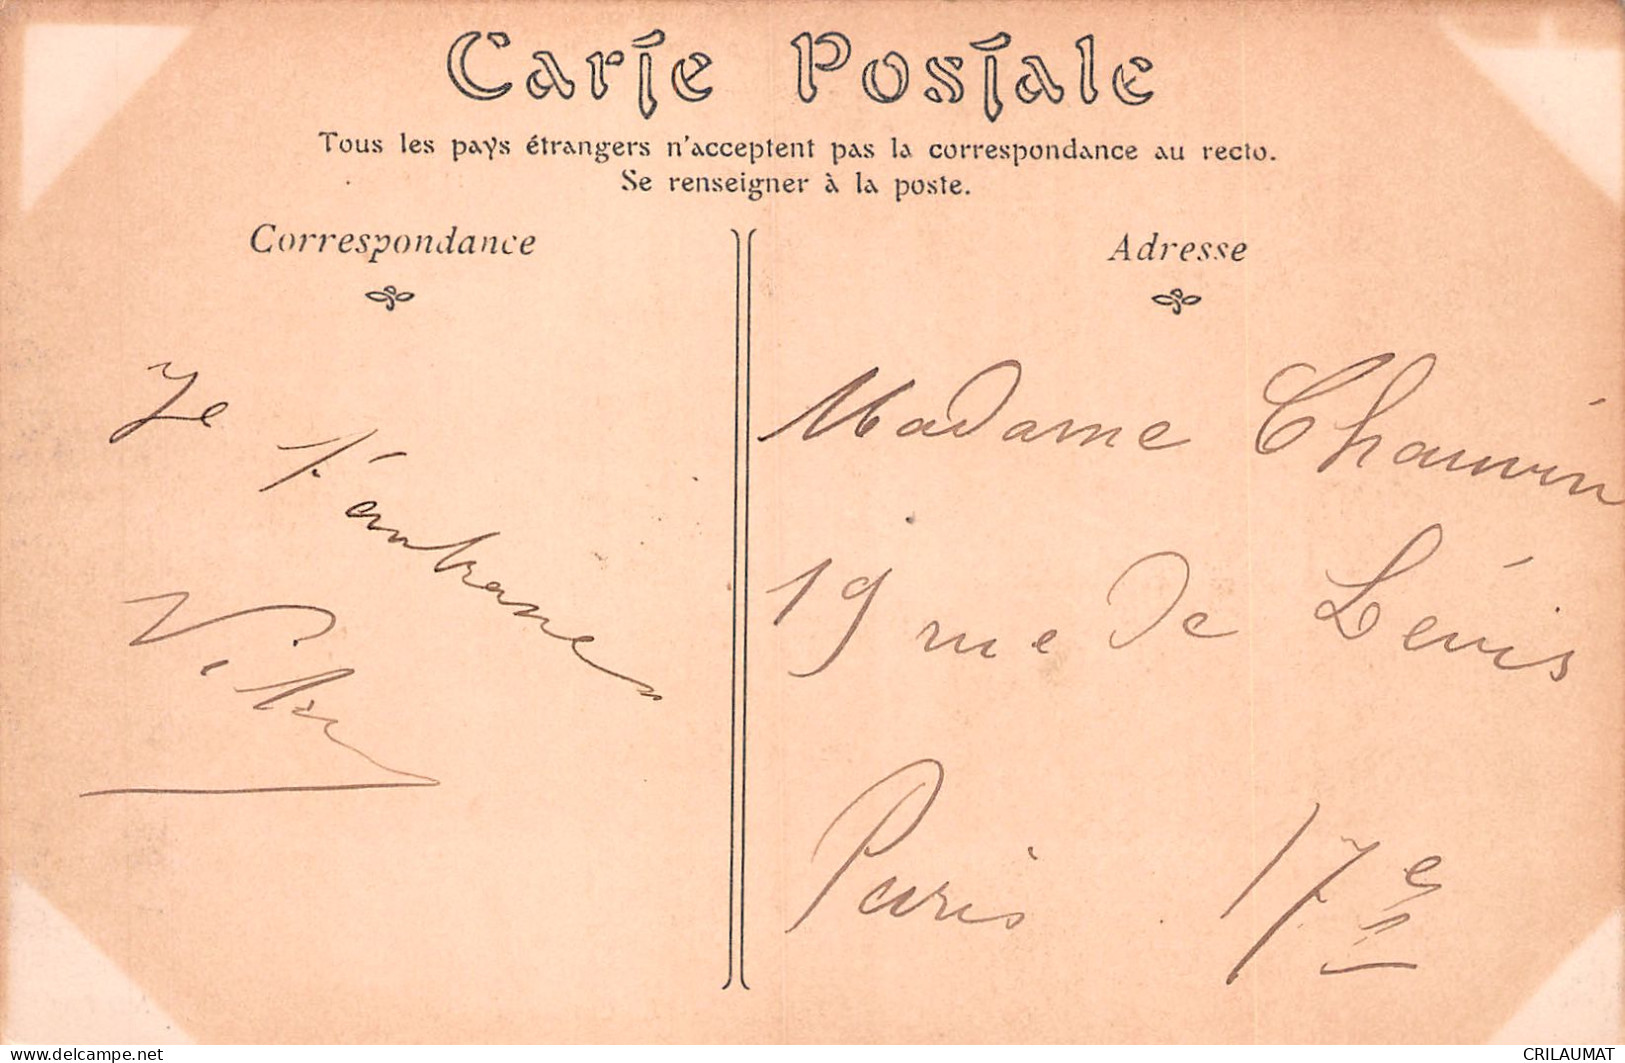 Carte Postale
Tous les pays étrangers n'acceptent pas la correspondance au recto.
Se renseigner à la poste.
Correspondance
Adresse
Je
t'embrasse
Victor
Madame Chauvin
19 rue de Lévis
Paris 17e
www.delcampe.net
CRILAUMAT